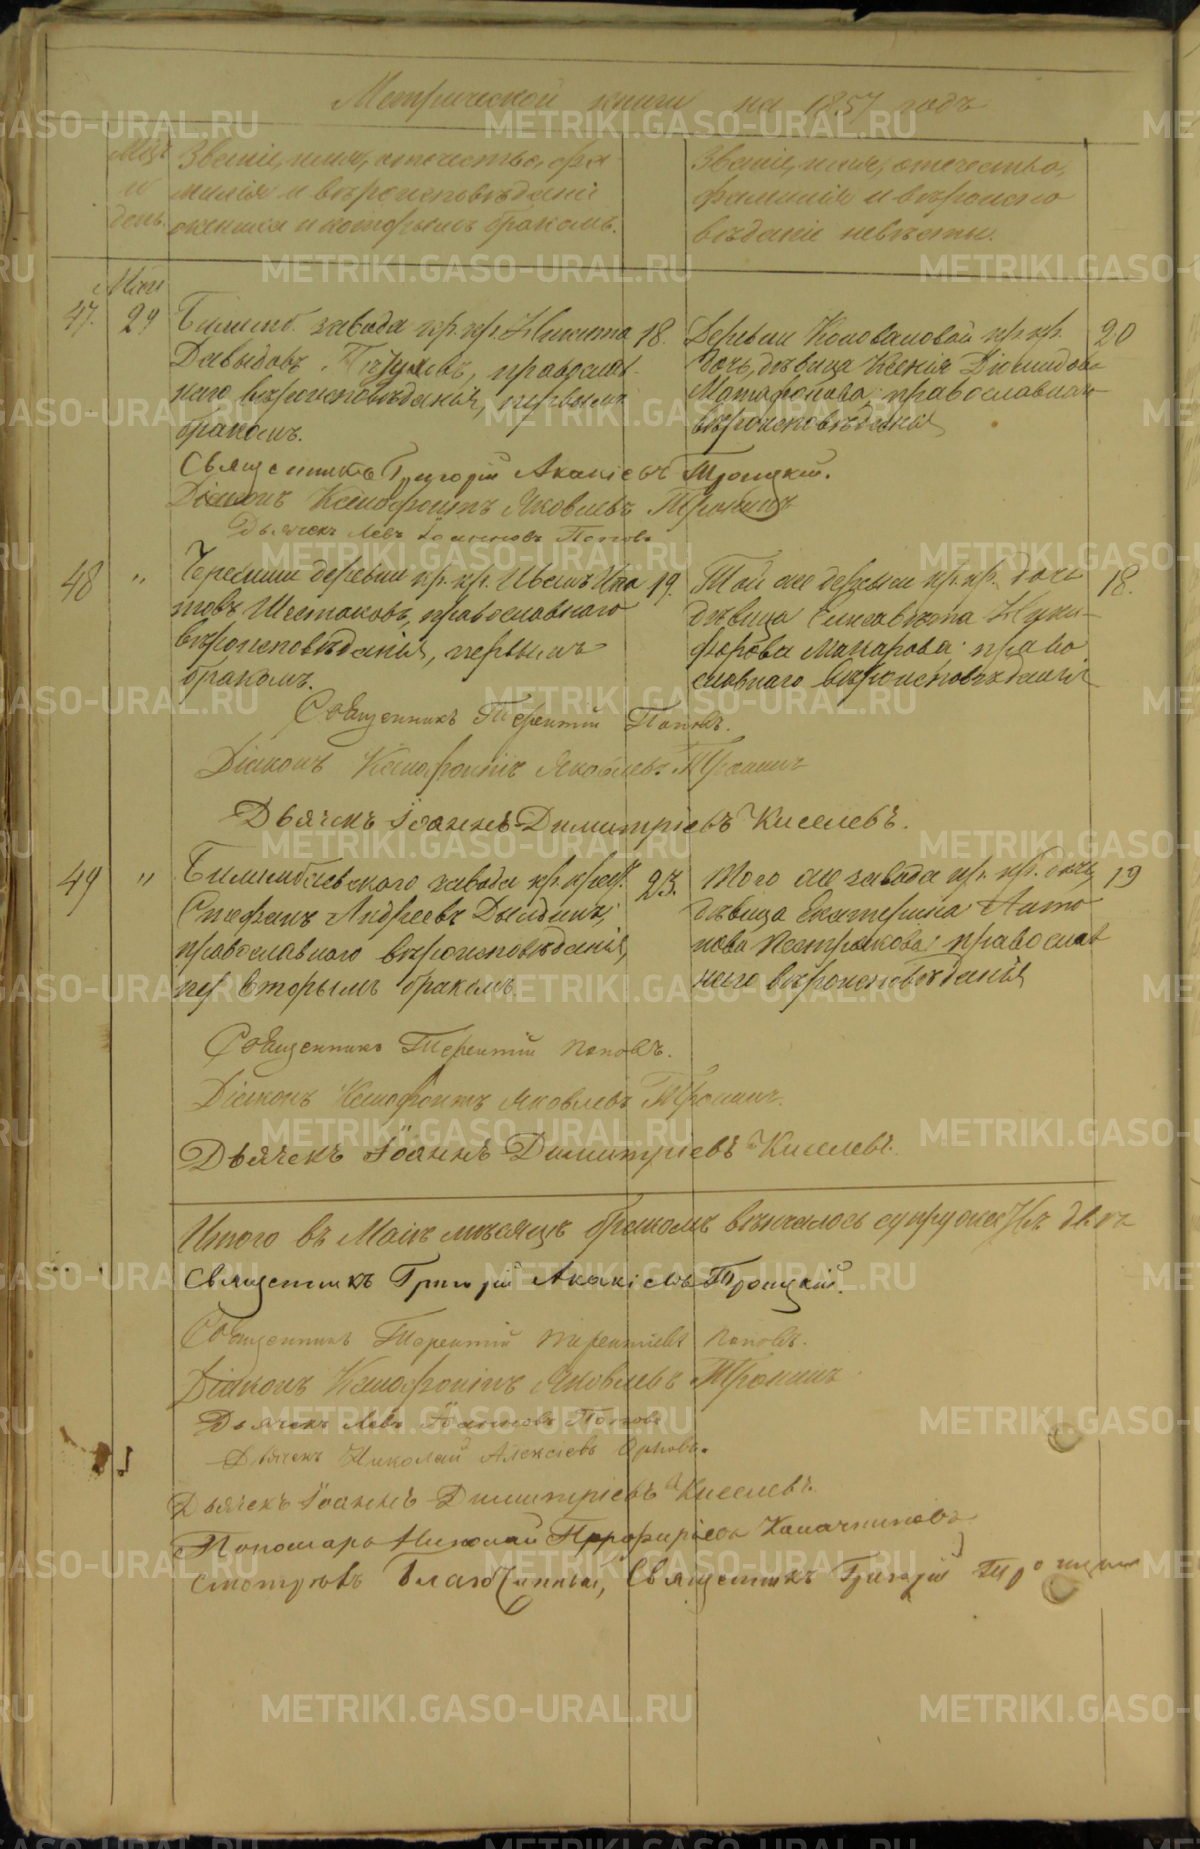 Метрической книги на 1857 годъ
Мцъ и день.
Званіе, имя, отечество, фа
милія и вѣроисповѣданіе
жениха и которымъ бракомъ.
Званіе, имя, отечество,
фамилія и вѣроиспо
вѣданіе невѣсты.
Маія
47. 29
Билимб. завода кр. кр. Никита 18.
Давыдовъ
наго вѣроисповѣданія, первымъ
бракомъ.
Деревни Коноваловой кр. кр. 20
дочь, дѣвица Ксенія
православнаго
вѣроисповѣданія
Священникъ Григорій Акакіевъ Троицкій.
Діаконъ Ксенофонтъ Яковлевъ Тронинъ
Дьячекъ Левъ Іоанновъ Поповъ
48 "
Черемши деревни кр. кр. Иванъ Ипа 19.
товъ Шестаковъ, православнаго
вѣроисповѣданія, первымъ
бракомъ.
Той же деревни кр. кр. дочь 18.
дѣвица Елисавета Ники-
форова Макарова православнаго вѣроисповѣданія
Священникъ Терентій Поповъ.
Діаконъ Ксенофонтъ Яковлевъ Тронинъ
Дьячекъ Іоаннъ Димитріевъ Киселевъ.
49 "
Билимбаевскаго завода кр. 23.
Стефанъ Андреевъ Дылдинъ,
православнаго вѣроисповѣданія,
вторымъ бракомъ.
Того же завода кр. кр. дочь, 19
дѣвица Екатерина Анто
нова православ
наго вѣроисповѣданія
Священникъ Терентій Поповъ.
Діаконъ Ксенофонтъ Яковлевъ Тронинъ.
Дьячекъ Іоаннъ Димитріевъ Киселевъ.
Итого въ Маіѣ мѣсяцѣ бракомъ вѣнчалось
Священникъ Григорій Акакіевъ Троицкій.
Священникъ Терентій Терентіевъ Поповъ.
Діаконъ Ксенофонтъ Яковлевъ Тронинъ
Дьячекъ Левъ Іоанновъ Поповъ
Дьячекъ Николай Алексіевъ Орловъ.
Дьячекъ Іоаннъ Димитріевъ Киселевъ.
Пономарь Николай Порфиріевъ Калачниковъ
Смотрѣлъ Благочинный, Священникъ Григорій Троицкій
METRIKI.GASO-URAL.RU